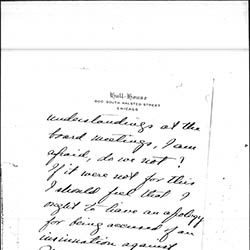 Hull-House
800 SOUTH HALSTED STREET
CHICAGO
understandings at the
board meetings, I am
afraid, do we not?
If it were not for this
I should feel that I
ought to have an apology
for being accused of an
insinuation against